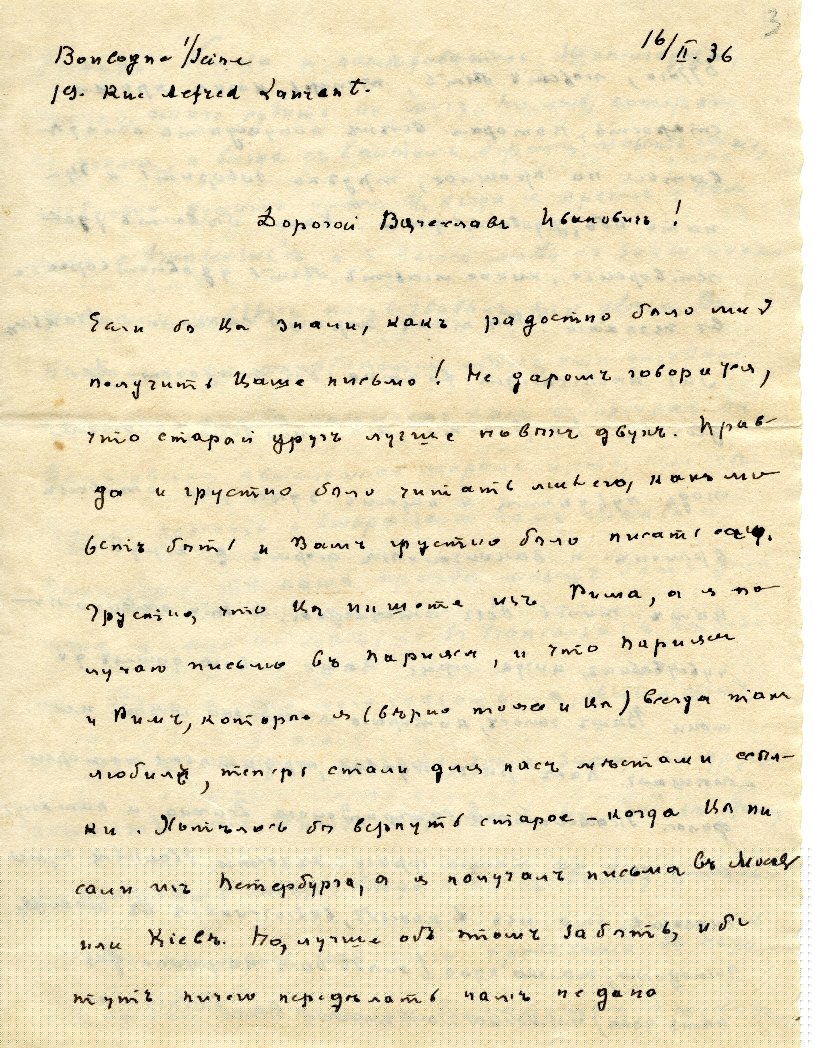 3
16/II. 36
Boulogne s/Seine
19. Rue Alfred Laurant.
Дорогой Вячеславъ Ивановичъ!
Если бъ Вы знали, какъ радостно было мнѣ
получить Ваше письмо! Не даромъ говорится,
что старый другъ лучше новыхъ двухъ. Прав-
да и грустно было читать его, какъ мо
жетъ быть и Вамъ грустно было писать его.
Грустно, что Вы пишете изъ Рима, а я по
лучаю письмо въ Парижѣ, и что Парижъ
и Римъ, которые я (вѣрно тоже и Вы) всегда такъ
любилъ, теперь стали для насъ мѣстами ссыл-
ки. Хотѣлось бы вернуть старое – когда Вы пи
сали изъ Петербурга, а я получалъ письма въ Москвѣ
или Кіевѣ. Но, лучше объ этомъ забыть, ибо
тутъ ничего передѣлать намъ не дано